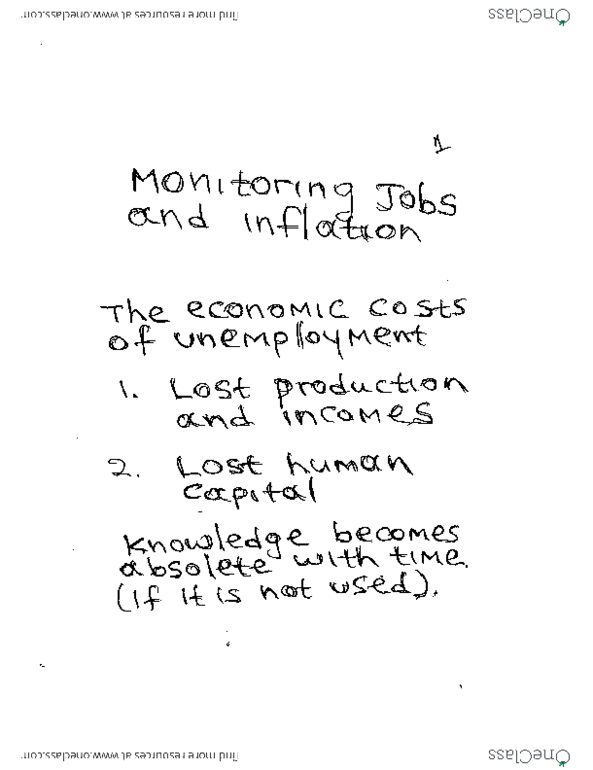 find more resources at www.oneclass.com
OneClass
1
Monitoring Jobs
and inflation
The economic costs
of unemployment
1. Lost production
and incomes
2. Lost human
capital
Knowledge becomes
absolete with time.
(if it is not used).
find more resources at www.oneclass.com
OneClass